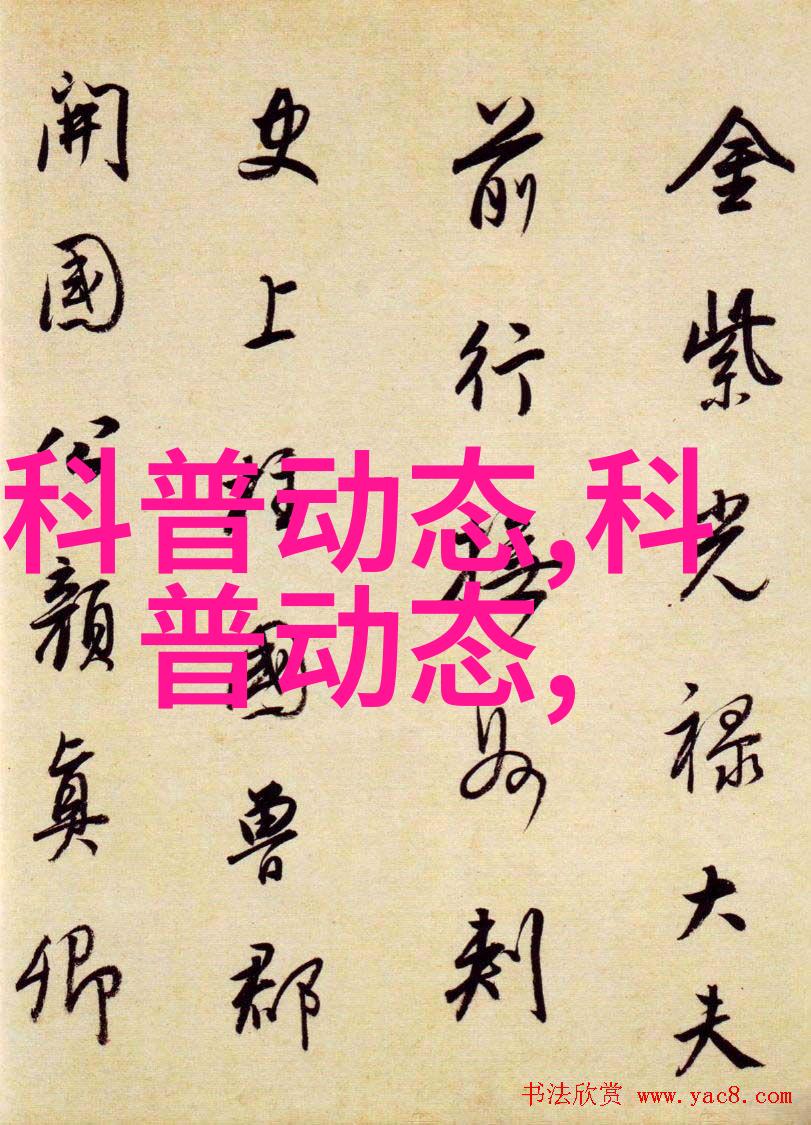 金紫光禄大夫
前行撫州刺
史上柱國魯郡
開國公顏真卿
科普动态,科
普动态,
书法欣赏 www.yac8.com